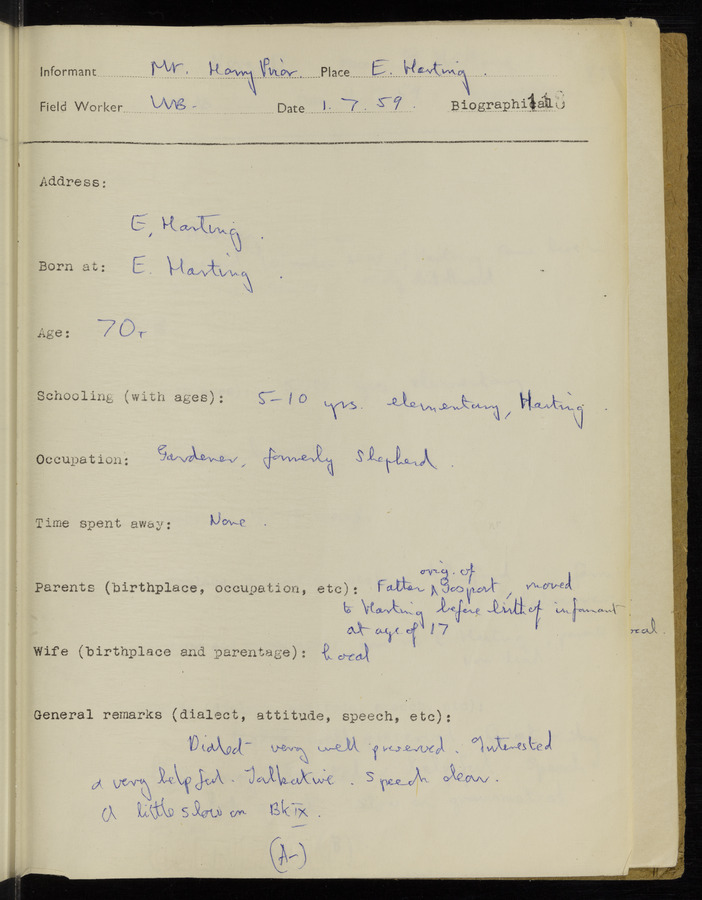 Informant Mr. Harry Prior. Place E. Harting.
Field Worker WB- Date 1. 7. 59. Biographical
Address:
E. Harting.
Born at: E. Harting.
Age: 70+
Schooling (with ages): 5-10 yrs. elementary, Harting.
Occupation: Gardener, formerly Shepherd.
Time spent away: None.
orig. of
Parents (birthplace, occupation, etc): Father ∧ Gosport, moved
to Harting before birth of informant
at age of 17
Wife (birthplace and parentage): Local
General remarks (dialect, attitude, speech, etc):
Dialect very well preserved. Interested
& very helpful. Talkative. Speech clear.
A little slow on Bk IX.
(A-)